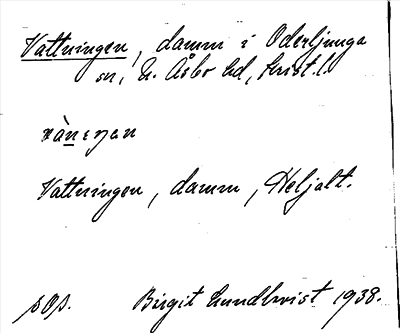 Vattningen, damm i Oderljunga
sn, N. Åsbo hd, Krist. l.
Vattningen, damm, Heljalt.
sOp. Birgit Lundkvist 1938.